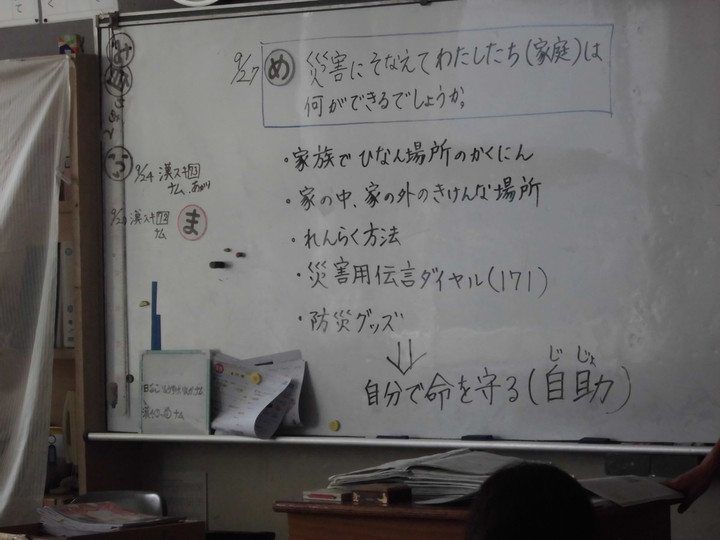 9/27 め 災害にそなえてわたしたち(家庭)は
何ができるでしょうか。
・家族でひなん場所のかくにん
・家の中、家の外のきけんな場所
・れんらく方法
・災害用伝言ダイヤル(171)
・防災グッズ
⇓
自分で命を守る(自助)
じ じょ
9/24 漢スキ
ま
漢スキ